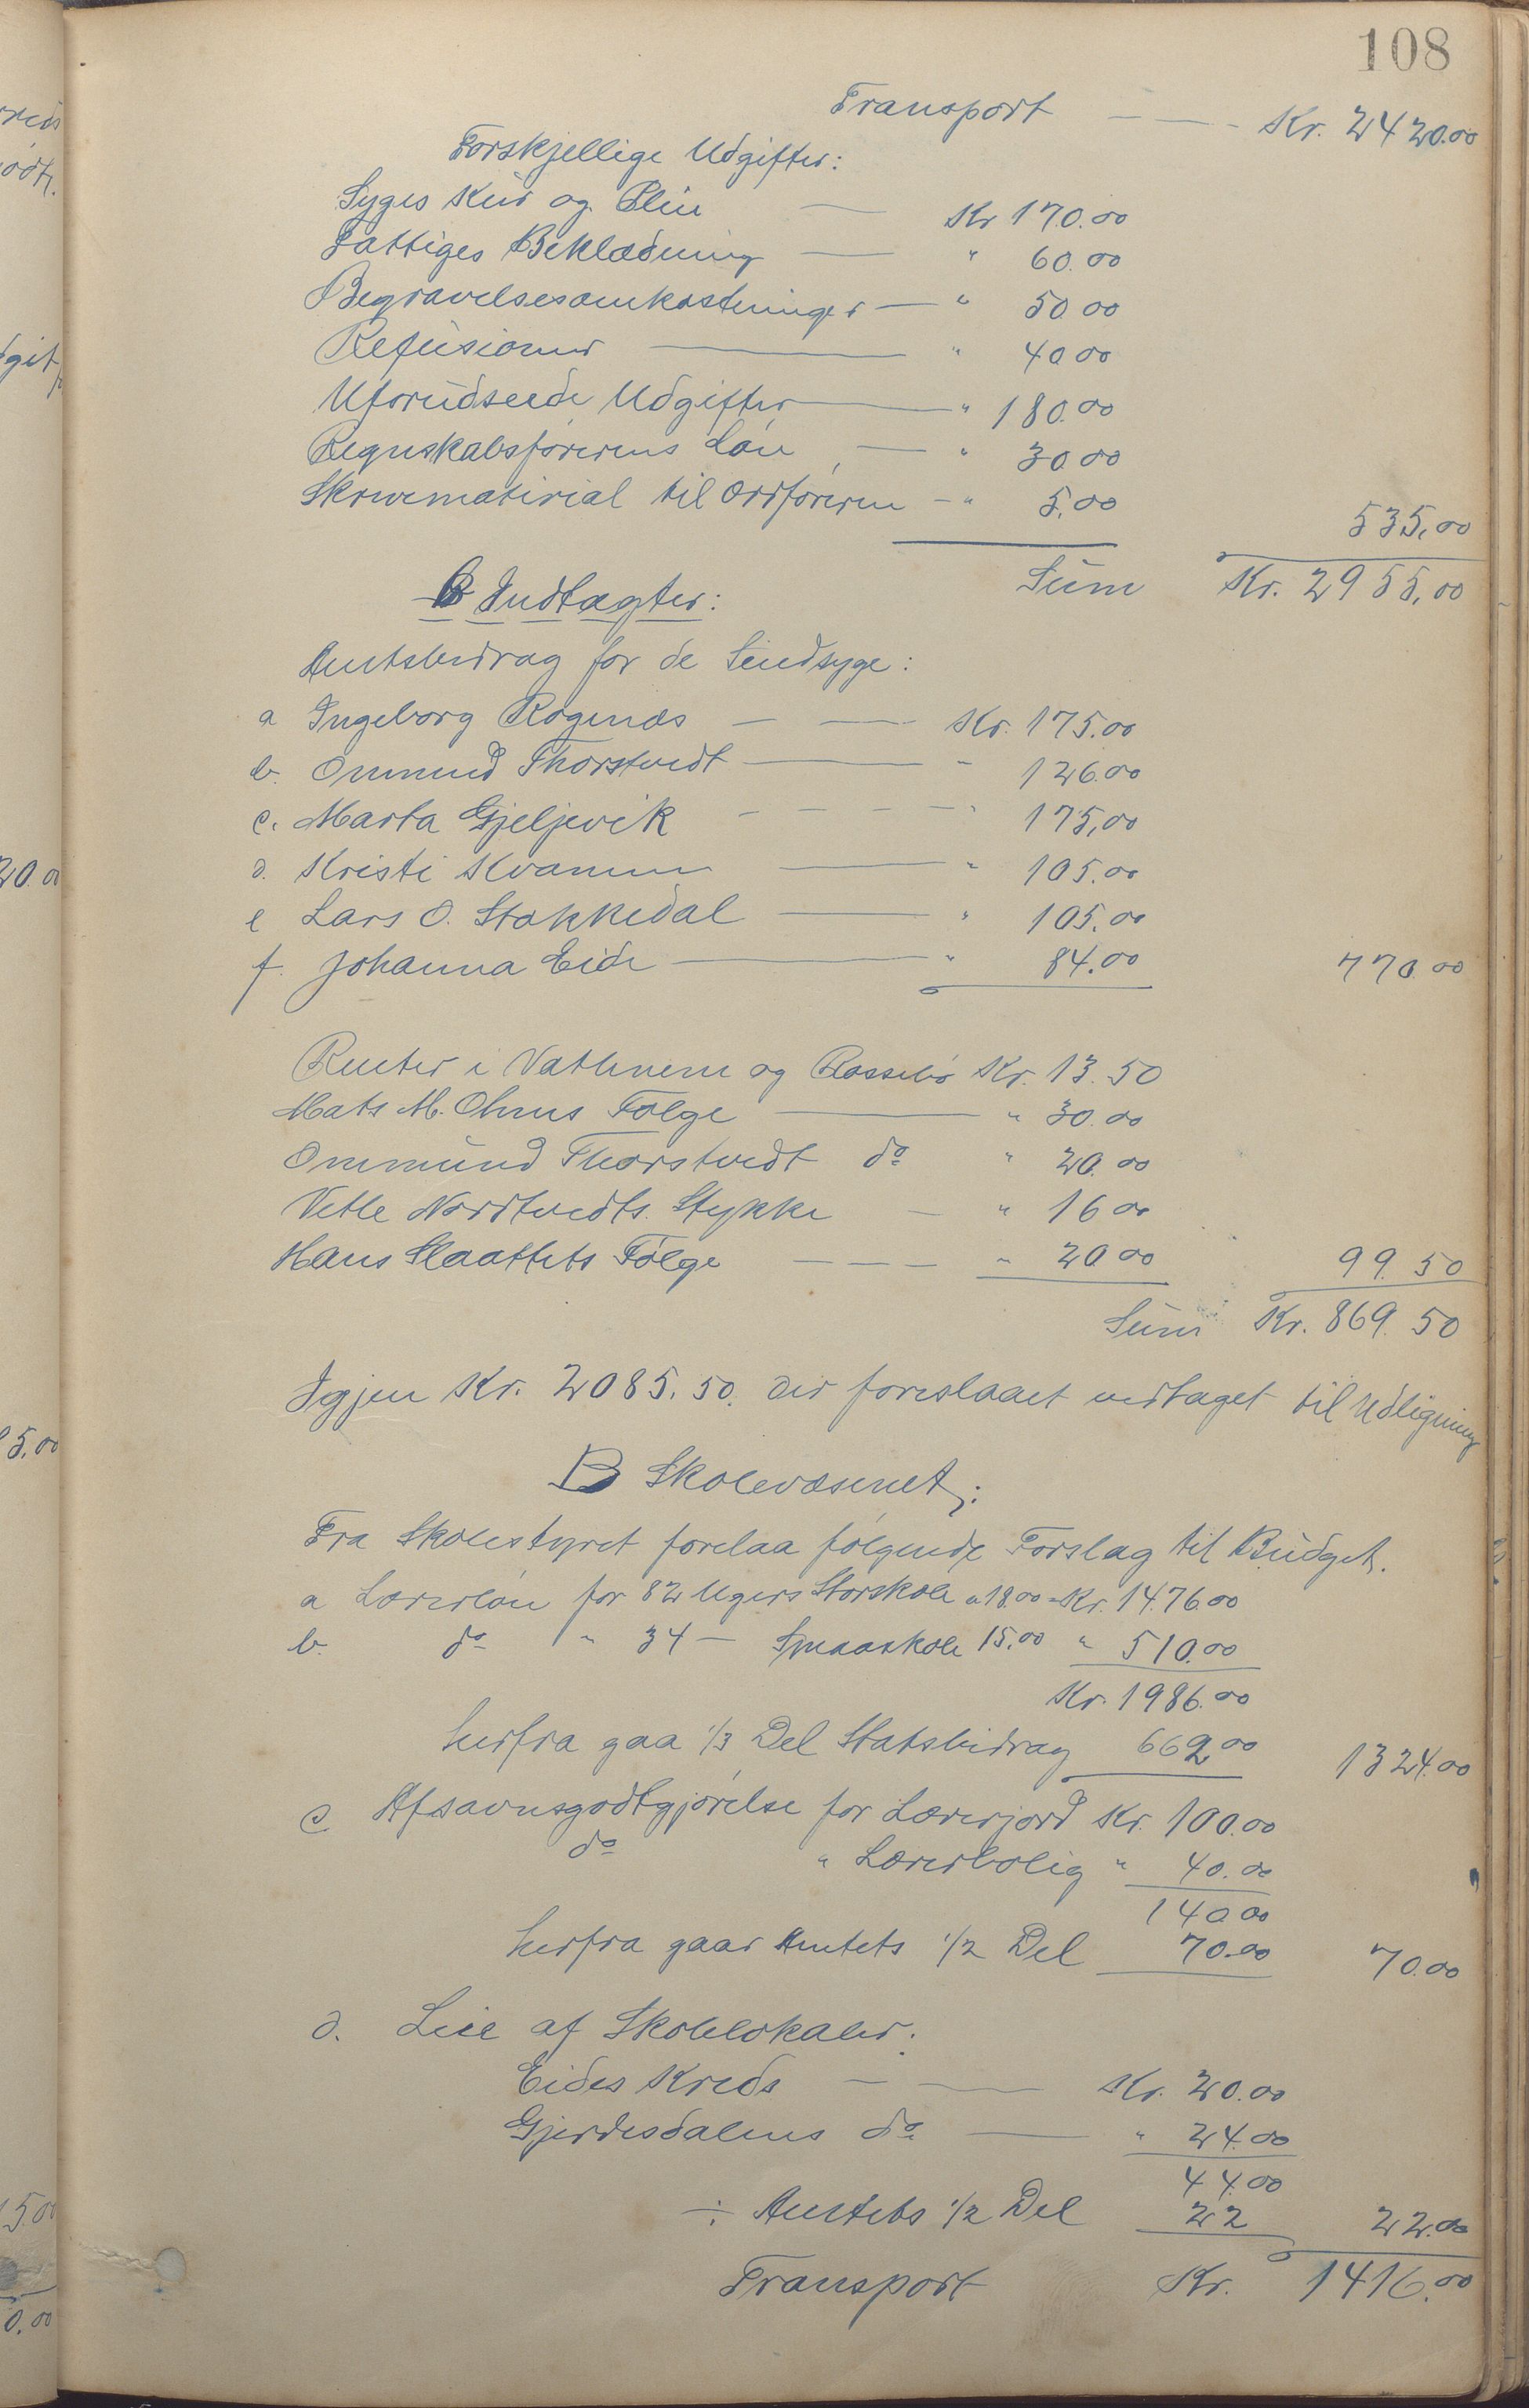 108
Transport — — Kr. 2420.00
Forskjellige Udgifter:
Syges Kur og Pleie — Kr 170.00
Fattiges Beklædning — " 60.00
Begravelsesomkostninger — " 50 00
Refusioner — " 40 00
Uforudseede Udgifter — " 180.00
Regnskabsførerens Løn — " 30 00
Skrivematerial til Ordføreren - " 5.00 535,00
Sum Kr. 2955,00
B Indtægter:
Amtsbidrag for de Sindsyge:
a Ingeborg Rogenæs — — Kr. 175.00
b. Ommund Thorstvedt — " 126.00
c. Marta Gjeljevik - - - - " 175,00
d. Kristi Kvamm — " 105.00
e Lars O. Stokkedal — " 105.00
f. Johanna Eide — " 84.00 770.00
Renter i Vatnene og Rossebø Kr. 13.50
Mats M. Ohms Følge — " 30.00
Ommund Thorstvedt do " 20.00
Vetle Nordtvedts Stykke — " 16 00
Hans Slaattets Følge — — — " 20 00 99.50
Sum Kr. 869.50
Igjen Kr. 2085.50. der foreslaaet vedtaget til Udligning
B Skolevæsenet:
Fra Skolestyret forelaa følgende Forslag til Budget.
a Lærerløn for 82 Ugers Storskole a 18.00 = Kr. 1476.00
b. do " 34 — Smaaskole 15.00 " 510.00
Kr. 1986.00
herfra gaa 1/3 Del Statsbidrag 662.00 1324.00
c Afsavnsgodtgjørelse for Lærerjord Kr. 100.00
do " Lærerbolig " 40.00
140 00
herfra gaar Amtets 1/2 Del 70.00 70.00
d. Leie af Skolelokaler:
Eides Kreds — — Kr. 20.00
Gjerdesdalens do — " 24.00
44.00
÷ Amtets 1/2 Del 22 22.00
Transport Kr. 1416.00